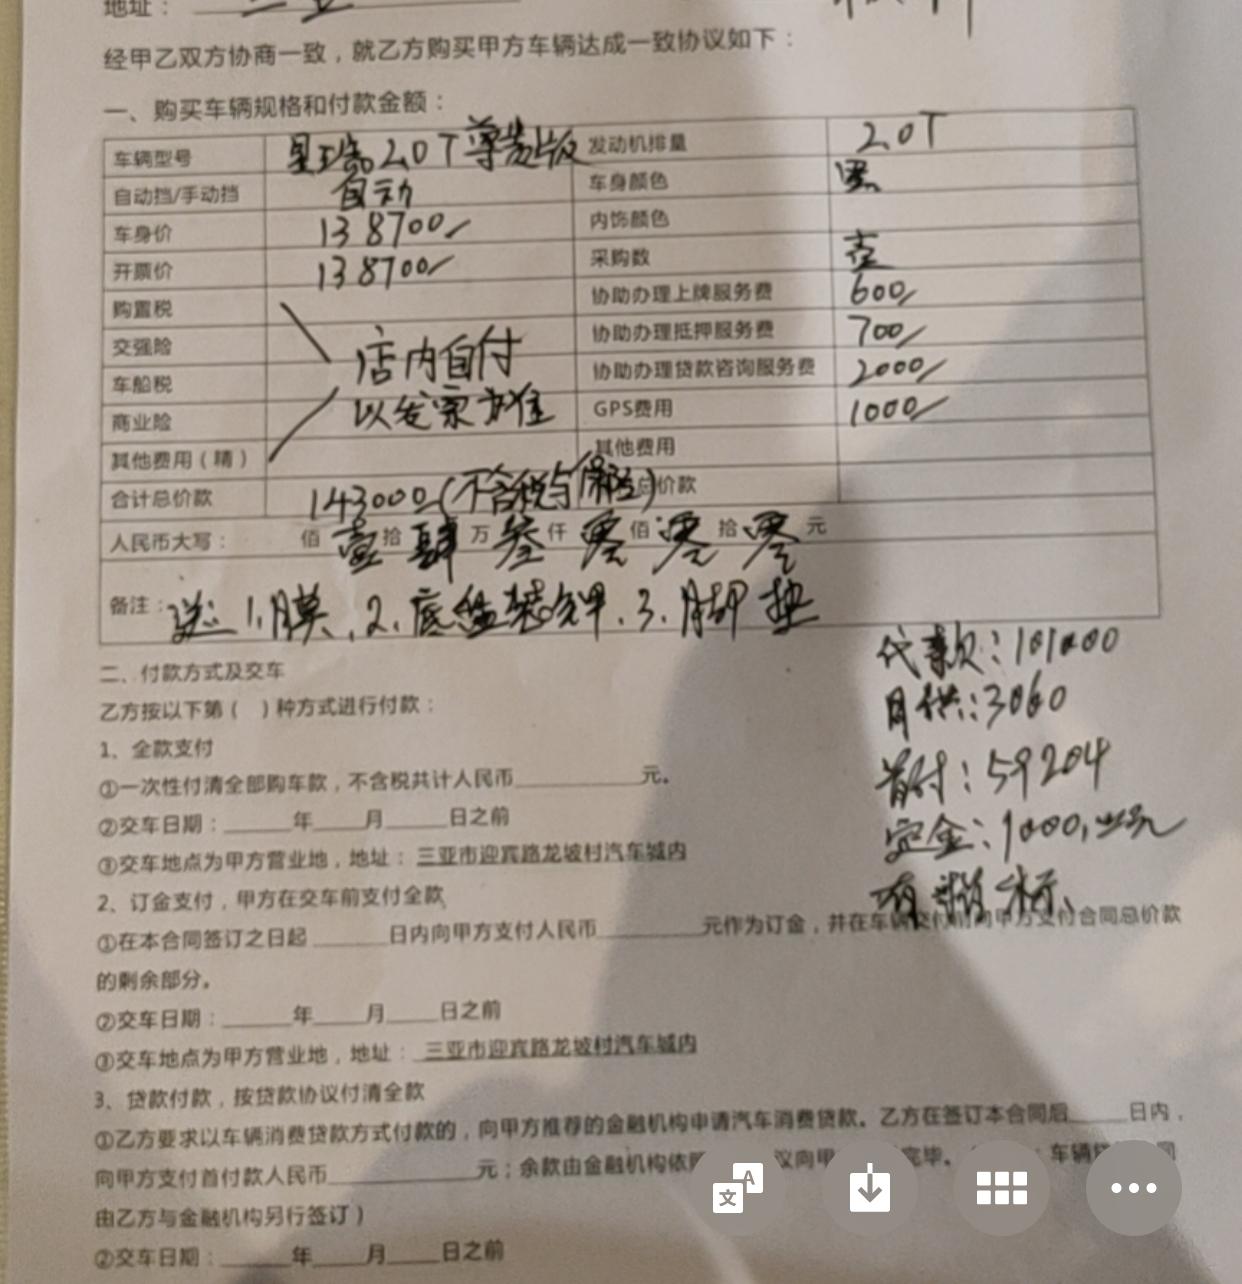 地址：三亚
经甲乙双方协商一致，就乙方购买甲方车辆达成一致协议如下：
一、购买车辆规格和付款金额：
车辆型号 星瑞2.0T尊贵版 发动机排量 2.0T
自动挡/手动挡 自动 车身颜色 黑
车身价 138700 内饰颜色
开票价 138700 采购数 壹
购置税 协助办理上牌服务费 600
交强险 店内自付 协助办理抵押服务费 700
车船税 协助办理贷款咨询服务费 2000
商业险 以发票为准 GPS费用 1000
其他费用（精） 其他费用
合计总价款 143000（不含税与保险） 总价款
人民币大写： 佰 壹 拾 肆 万 叁 仟 零 佰 零 拾 零 元
备注：送：1.膜、2.底盘装甲、3.脚垫
代款：101000
月供：3060
首付：59204
定金：1000，
二、付款方式及交车
乙方按以下第（ ）种方式进行付款：
1、全款支付
①一次性付清全部购车款，不含税共计人民币______元。
②交车日期：______年____月____日之前
③交车地点为甲方营业地，地址：三亚市迎宾路龙坡村汽车城内
2、订金支付，甲方在交车前支付全款
①在本合同签订之日起______日内向甲方支付人民币______元作为订金，并在车辆交付前向甲方支付合同总价款
的剩余部分。
②交车日期：______年____月____日之前
③交车地点为甲方营业地，地址：三亚市迎宾路龙坡村汽车城内
3、贷款付款，按贷款协议付清全款
①乙方要求以车辆消费贷款方式付款的，向甲方推荐的金融机构申请汽车消费贷款。乙方在签订本合同后____日内，
向甲方支付首付款人民币______元；余款由金融机构依照 议向甲 完毕。 车辆
由乙方与金融机构另行签订）
②交车日期：______年____月____日之前